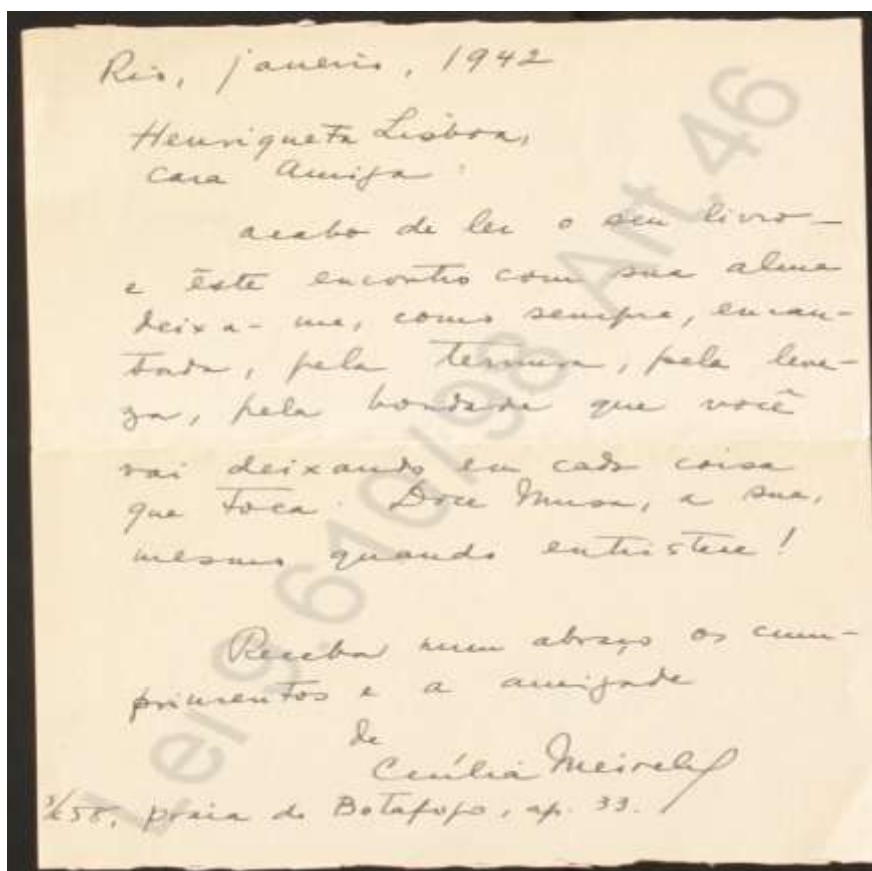 Rio, janeiro, 1942
Henriqueta Lisboa,
cara Amiga:
acabo de ler o seu livro –
e êste encontro com sua alma
deixa-me, como sempre, encan-
tada, pela ternura, pela leve-
za, pela bondade que você
vai deixando em cada coisa
que toca. Doce Musa, a sua,
mesmo quando entristece!
Receba num abraço os cum-
primentos e a amizade
de
Cecília Meireles
58, praia de Botafogo, ap. 33.
Lei 9.610/98 Art. 46